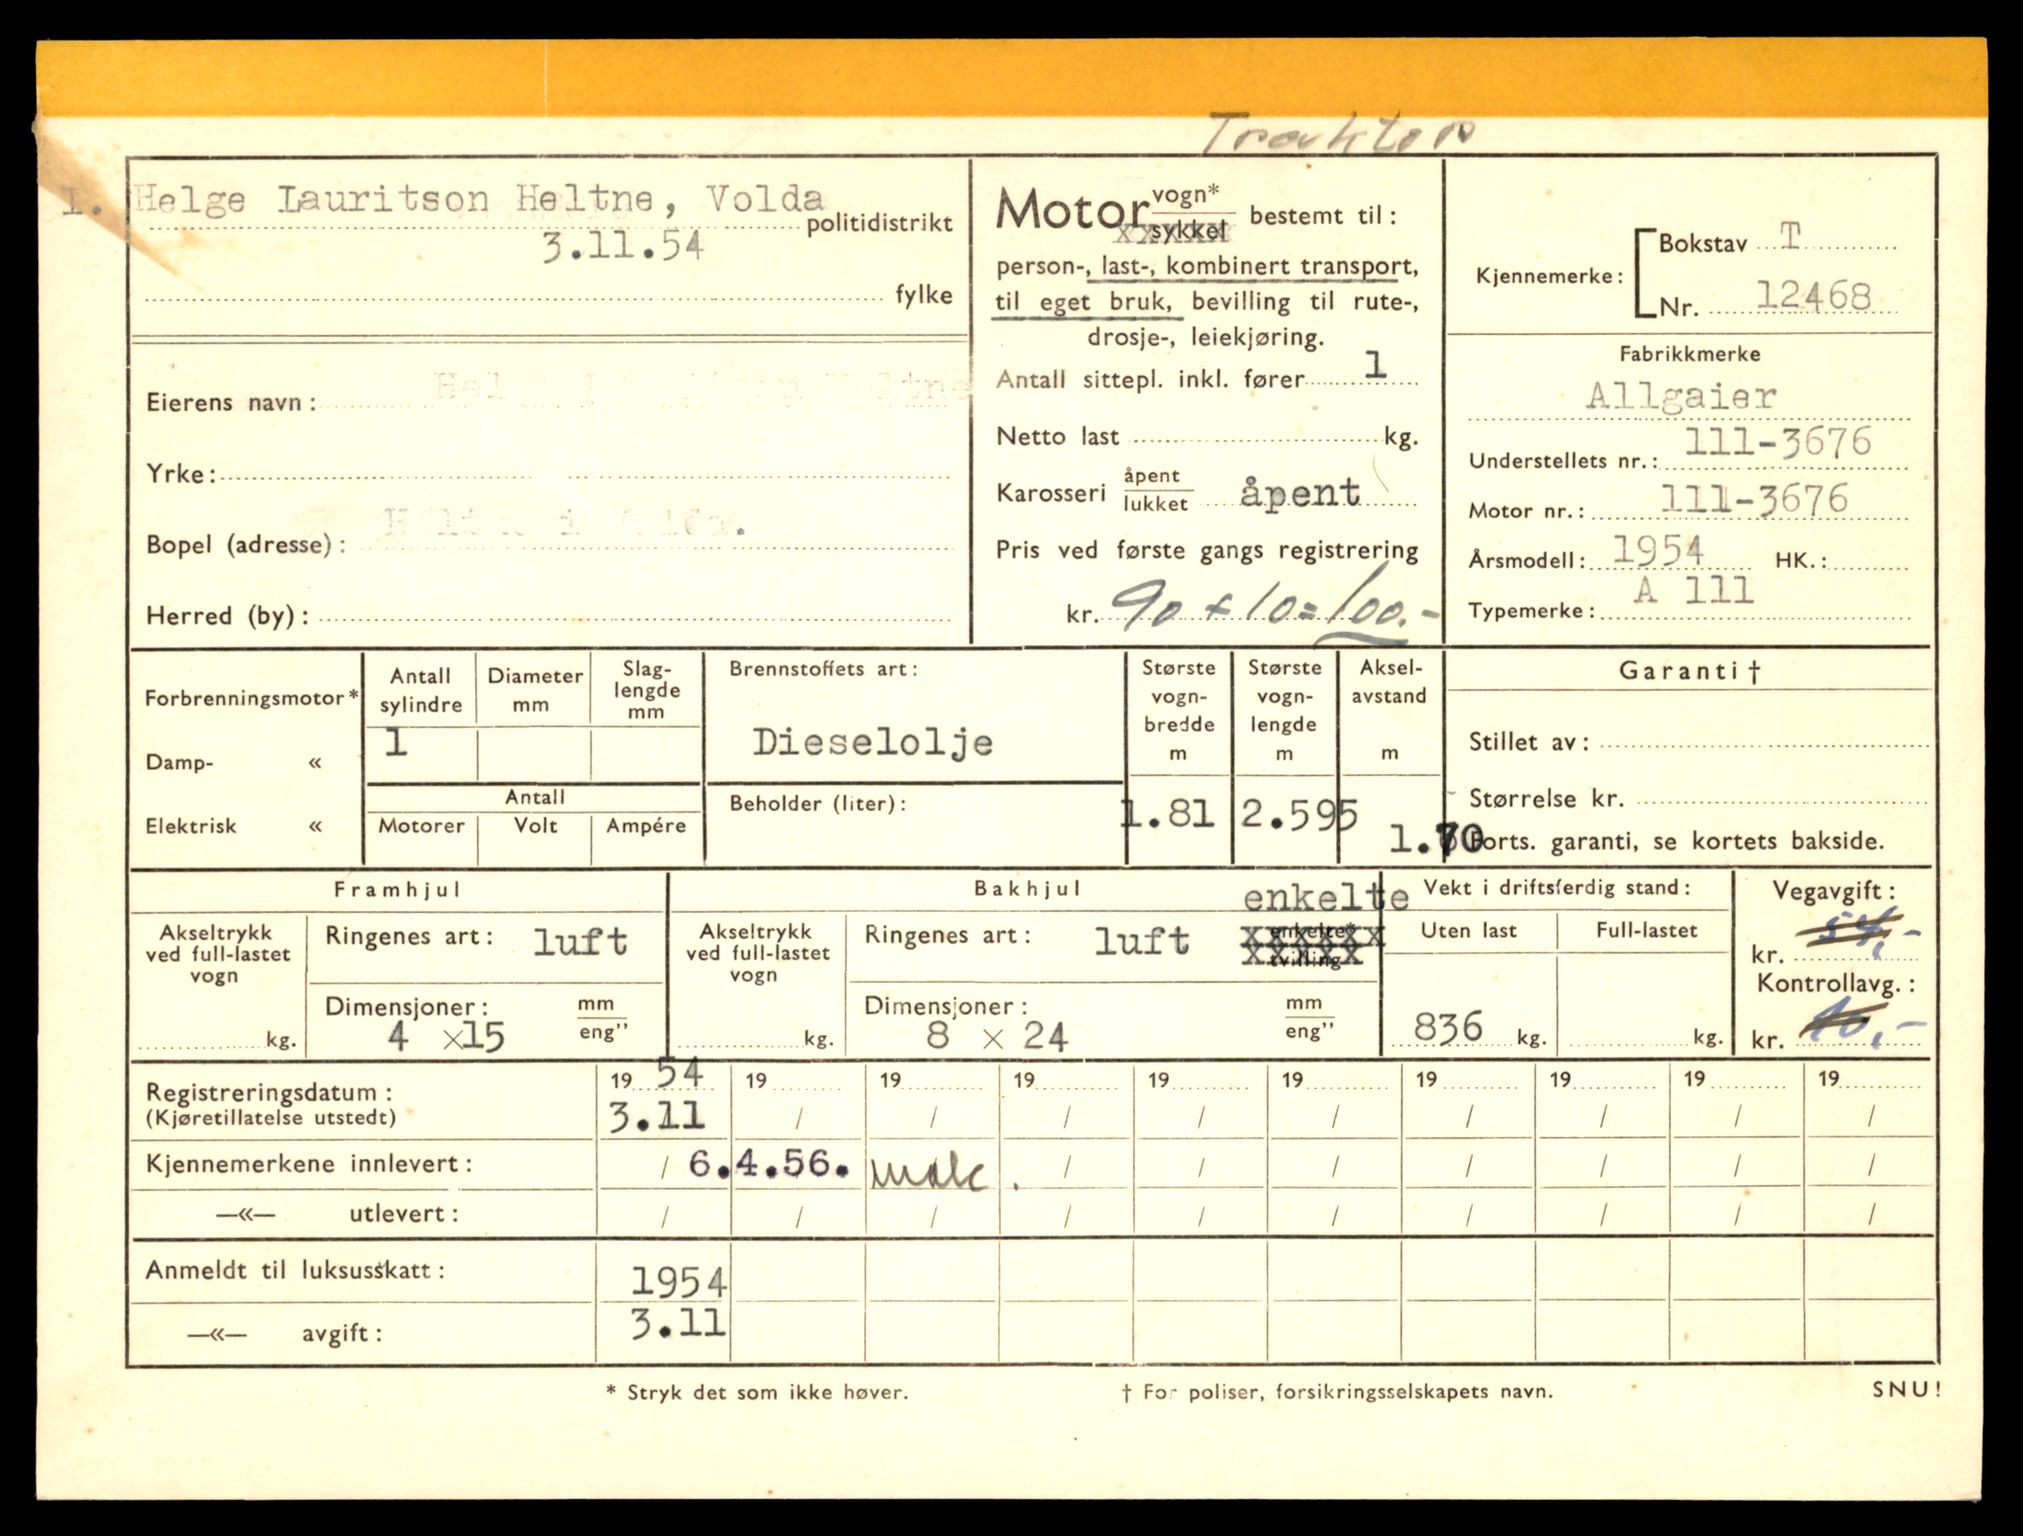 Traktor
1. Helge Lauritson Heltne, Volda
politidistrikt
3.11.54
fylke
Eierens navn: Heltne
Yrke:
Bopel (adresse):
Herred (by):
Motor vogn* sykkel bestemt til:
person-, last-, kombinert transport,
til eget bruk, bevilling til rute-,
drosje-, leiekjøring.
Antall sittepl. inkl. fører 1
Netto last kg.
Karosseri åpent lukket åpent
Pris ved første gangs registrering
kr. 90 + 10 = 100.-
Kjennemerke:
Bokstav T
Nr. 12468
Fabrikkmerke
Allgaier
Understellets nr.: 111-3676
Motor nr.: 111-3676
Årsmodell: 1954 HK.:
Typemerke: A 111
Forbrenningsmotor*
Damp- «
Elektrisk «
Antall sylindre
1
Diameter mm
Slag-lengde mm
Antall
Motorer Volt Ampére
Brennstoffets art:
Dieselolje
Beholder (liter):
Største vogn-bredde m
1.81
Største vogn-lengde m
2.595
Aksel-avstand m
1.70
Garanti †
Stillet av:
Størrelse kr.
Forts. garanti, se kortets bakside.
Framhjul
Akseltrykk ved full-lastet vogn
kg.
Ringenes art: luft
Dimensjoner: mm eng”
4 x 15
Bakhjul
Akseltrykk ved full-lastet vogn
kg.
Ringenes art: luft
enkelte
enkelte*
tvilling
Dimensjoner: mm eng”
8 x 24
Vekt i driftsferdig stand:
Uten last Full-lastet
836 kg. kg.
Vegavgift:
kr. 54,-
Kontrollavg.:
kr. 10,-
Registreringsdatum:
(Kjøretillatelse utstedt)
19 54 19 19 19 19 19 19 19 19 19
3.11 / / / / / / / / /
Kjennemerkene innlevert: / 6.4.56. / / / / / / /
—«— utlevert: / / / / / / / / / /
Anmeldt til luksusskatt: 1954
—«— avgift: 3.11
* Stryk det som ikke høver.
† For poliser, forsikringsselskapets navn.
SNU!